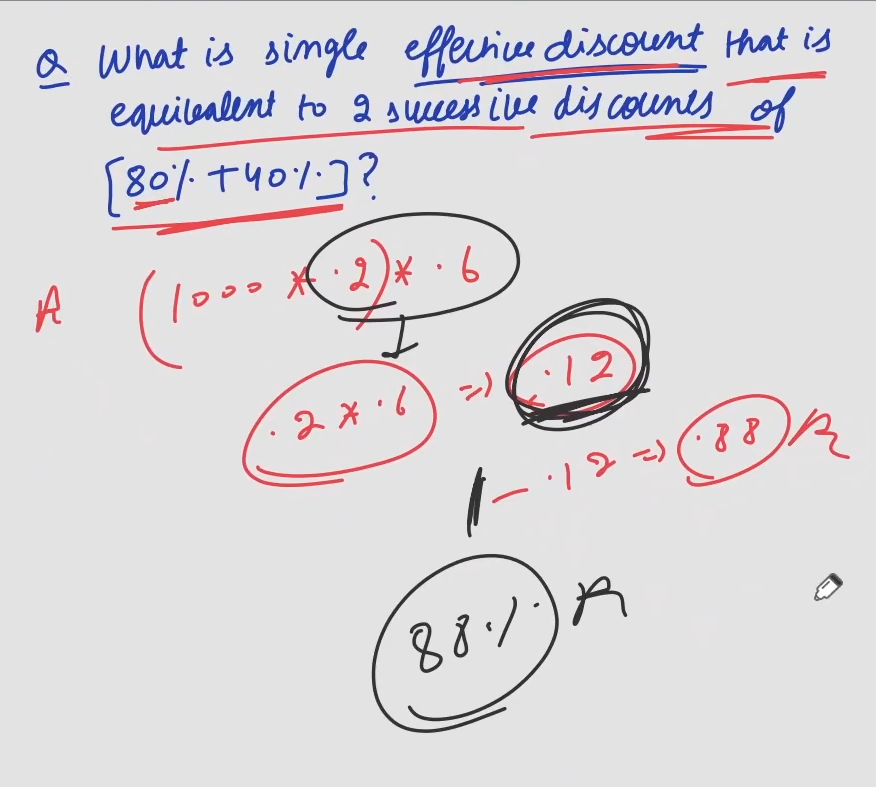 Q What is single effective discount that is
equivalent to 2 successive discounts of
[80% + 40%]?
A (1000 * .2) * .6
.2 * .6 => .12
1 - .12 => .88 A
88% A